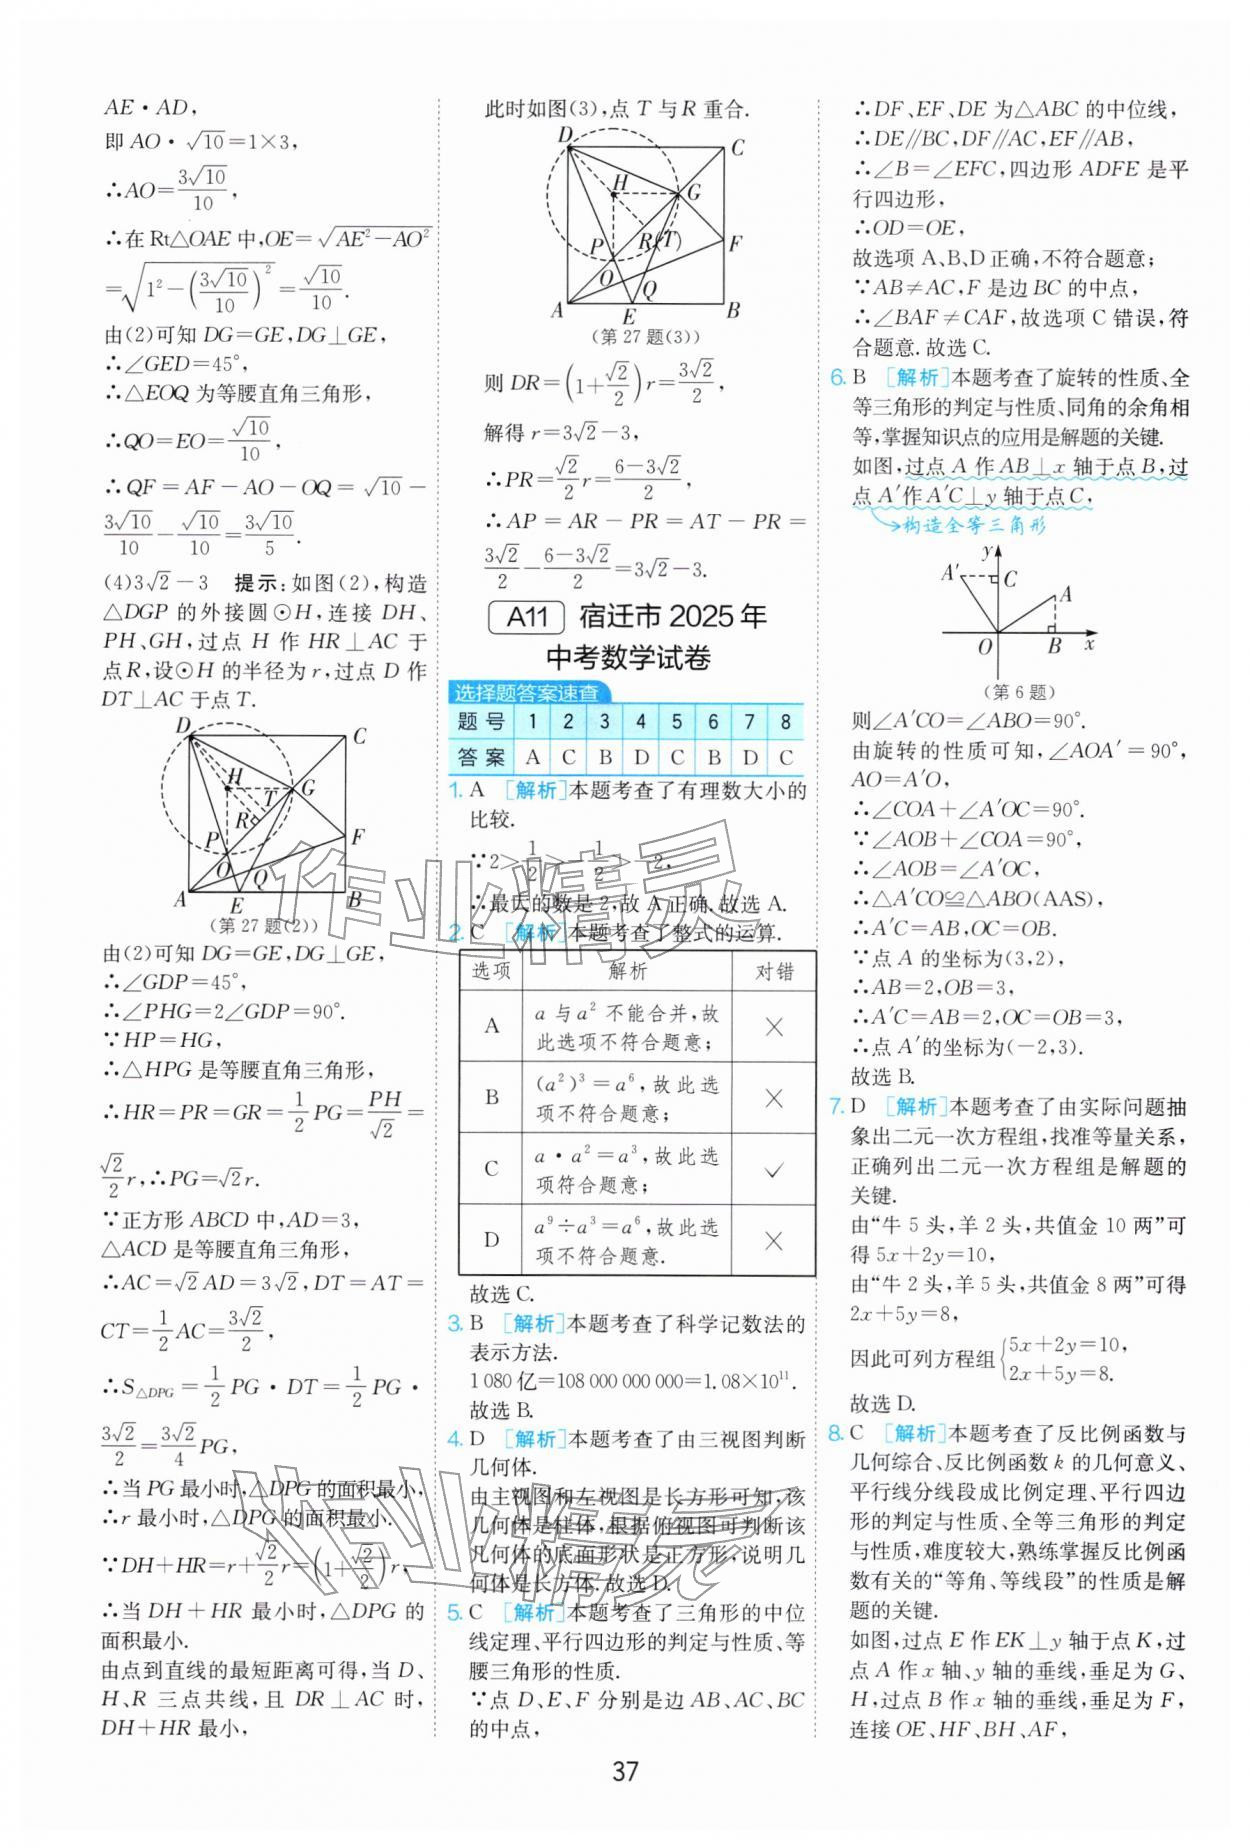 AE·AD,
即 AO·√10=1×3,
∴AO=3√10/10,
∴在 Rt△OAE 中,OE=√(AE²−AO²)
=√(1²−(3√10/10)²)=√10/10.
由(2)可知 DG=GE,DG⊥GE,
∴∠GED=45°,
∴△EOQ 为等腰直角三角形,
∴QO=EO=√10/10,
∴QF=AF−AO−OQ=√10−
3√10/10−√10/10=3√10/5.
(4)3√2−3 提示:如图(2),构造
△DGP 的外接圆⊙H,连接 DH、
PH、GH,过点 H 作 HR⊥AC 于
点R,设⊙H 的半径为 r,过点 D 作
DT⊥AC 于点 T.
D
C
H
G
T
R
P
F
O
Q
A
E
B
(第 27 题(2))
由(2)可知 DG=GE,DG⊥GE,
∴∠GDP=45°,
∴∠PHG=2∠GDP=90°.
∵HP=HG,
∴△HPG 是等腰直角三角形,
∴HR=PR=GR=1/2 PG=PH/√2=
√2/2 r,∴PG=√2r.
∵正方形 ABCD 中,AD=3,
△ACD 是等腰直角三角形,
∴AC=√2AD=3√2,DT=AT=
CT=1/2 AC=3√2/2,
∴S△DPG=1/2 PG·DT=1/2 PG·
3√2/2=3√2/4 PG,
∴当 PG 最小时,△DPG 的面积最小,
∴r 最小时,△DPG 的面积最小.
∵DH+HR=r+√2/2 r=(1+√2/2)r,
∴当 DH+HR 最小时,△DPG 的
面积最小.
由点到直线的最短距离可得,当 D、
H、R 三点共线,且 DR⊥AC 时,
DH+HR 最小,
此时如图(3),点 T 与 R 重合.
D
C
H
G
P
R(T)
F
O
Q
A
E
B
(第 27 题(3))
则 DR=(1+√2/2)r=3√2/2,
解得 r=3√2−3,
∴PR=√2/2 r=(6−3√2)/2,
∴AP=AR−PR=AT−PR=
3√2/2−(6−3√2)/2=3√2−3.
A11 宿迁市 2025 年
中考数学试卷
选择题答案速查
题号 1 2 3 4 5 6 7 8
答案 A C B D C B D C
1. A [解析]本题考查了有理数大小的
比较.
∵2>1/2>−1/2>−2,
∴最大的数是 2,故 A 正确.故选 A.
2. C [解析]本题考查了整式的运算.
选项 解析 对错
A a 与 a² 不能合并,故此选项不符合题意; ×
B (a²)³=a⁶,故此选项不符合题意; ×
C a·a²=a³,故此选项符合题意; ✓
D a⁹÷a³=a⁶,故此选项不符合题意. ×
故选 C.
3. B [解析]本题考查了科学记数法的
表示方法.
1 080 亿=108 000 000 000=1.08×10¹¹.
故选 B.
4. D [解析]本题考查了由三视图判断
几何体.
由主视图和左视图是长方形可知,该
几何体是柱体,根据俯视图可判断该
几何体的底面形状是正方形,说明几
何体是长方体.故选 D.
5. C [解析]本题考查了三角形的中位
线定理、平行四边形的判定与性质、等
腰三角形的性质.
∵点 D、E、F 分别是边 AB、AC、BC
的中点,
∴DF、EF、DE 为△ABC 的中位线,
∴DE∥BC,DF∥AC,EF∥AB,
∴∠B=∠EFC,四边形 ADFE 是平
行四边形,
∴OD=OE,
故选项 A、B、D 正确,不符合题意;
∵AB≠AC,F 是边 BC 的中点,
∴∠BAF≠CAF,故选项 C 错误,符
合题意.故选 C.
6. B [解析]本题考查了旋转的性质、全
等三角形的判定与性质、同角的余角相
等,掌握知识点的应用是解题的关键.
如图,过点 A 作 AB⊥x 轴于点 B,过
点 A′作 A′C⊥y 轴于点 C,
构造全等三角形
y
A′
C
A
O
B
x
(第 6 题)
则∠A′CO=∠ABO=90°.
由旋转的性质可知,∠AOA′=90°,
AO=A′O,
∴∠COA+∠A′OC=90°.
∵∠AOB+∠COA=90°,
∴∠AOB=∠A′OC,
∴△A′CO≌△ABO(AAS),
∴A′C=AB,OC=OB.
∵点 A 的坐标为(3,2),
∴AB=2,OB=3,
∴A′C=AB=2,OC=OB=3,
∴点 A′的坐标为(−2,3).
故选 B.
7. D [解析]本题考查了由实际问题抽
象出二元一次方程组,找准等量关系,
正确列出二元一次方程组是解题的
关键.
由“牛 5 头,羊 2 头,共值金 10 两”可
得 5x+2y=10,
由“牛 2 头,羊 5 头,共值金 8 两”可得
2x+5y=8,
因此可列方程组{5x+2y=10,
2x+5y=8.
故选 D.
8. C [解析]本题考查了反比例函数与
几何综合、反比例函数 k 的几何意义、
平行线分线段成比例定理、平行四边
形的判定与性质、全等三角形的判定
与性质,难度较大,熟练掌握反比例函
数有关的“等角、等线段”的性质是解
题的关键.
如图,过点 E 作 EK⊥y 轴于点 K,过
点 A 作 x 轴、y 轴的垂线,垂足为 G、
H,过点 B 作 x 轴的垂线,垂足为 F,
连接 OE、HF、BH、AF,
37
作业精灵
作业精灵